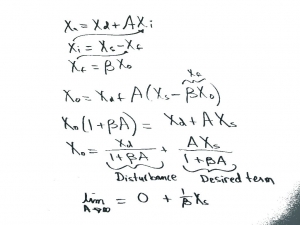 Xo = Xd + AXi
Xi = Xs - Xf
Xf = βXo
Xf
Xo = Xd + A(Xs - βXo)
Xo(1+βA) = Xd + AXs
Xo = Xd/(1+βA) + AXs/(1+βA)
Disturbance Desired term
lim A→∞ = 0 + 1/β Xs